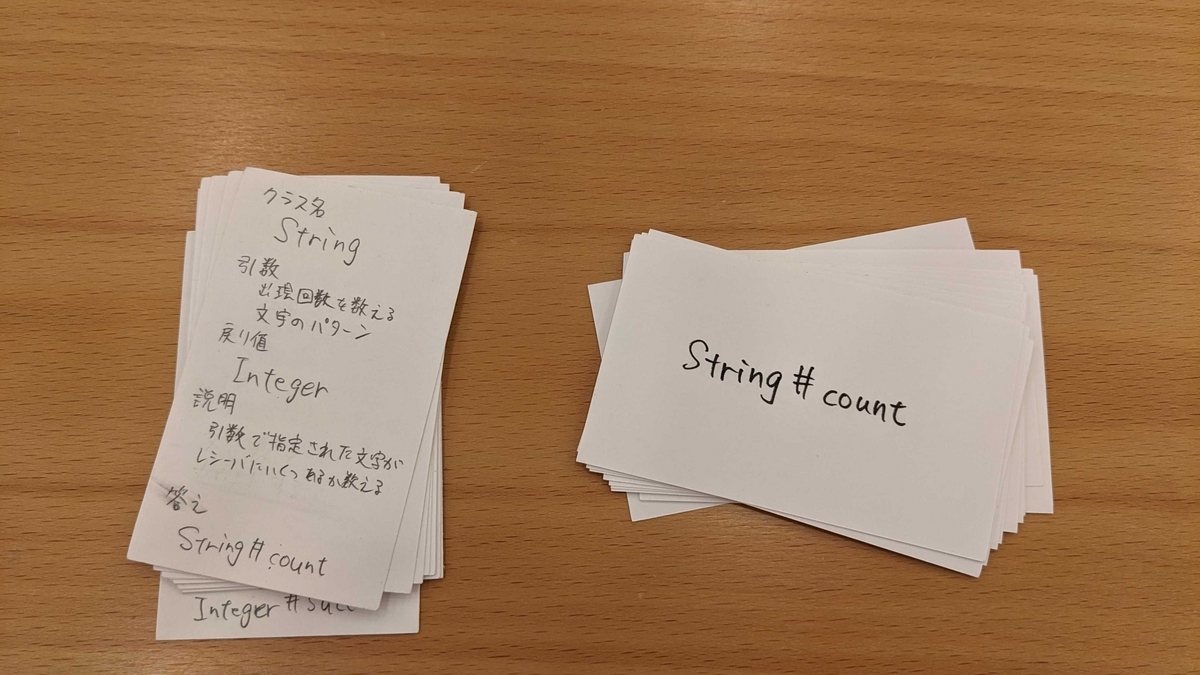 クラス名
String
引数
出現回数を数える
文字のパターン
戻り値
Integer
説明
引数で指定された文字が
レシーバにいくつあるか数える
答え
String#count
Integer#succ
String#count